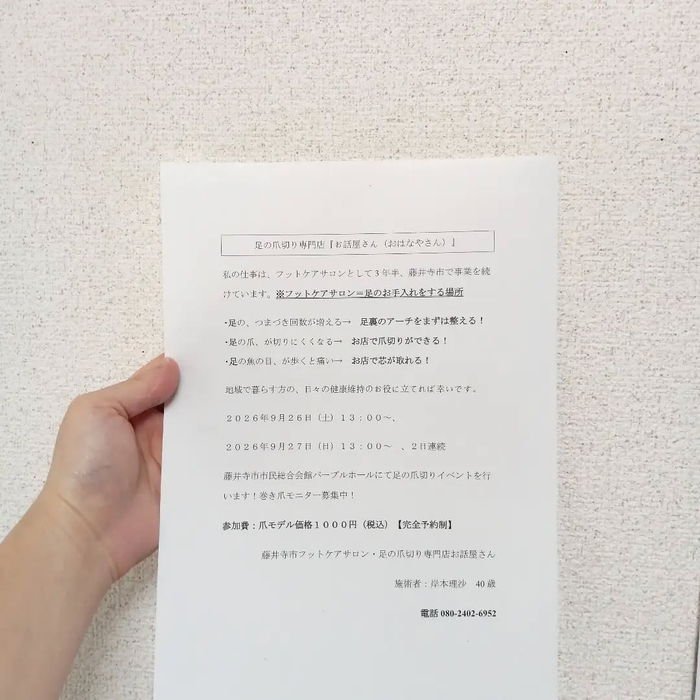 足の爪切り専門店『お話屋さん（おはなやさん）』
私の仕事は、フットケアサロンとして３年半、藤井寺市で事業を続
けています。※フットケアサロン＝足のお手入れをする場所
・足の、つまづき回数が増える→　足裏のアーチをまずは整える！
・足の爪、が切りにくくなる→　お店で爪切りができる！
・足の魚の目、が歩くと痛い→　お店で芯が取れる！
地域で暮らす方の、日々の健康維持のお役に立てれば幸いです。
２０２６年９月２６日（土）１３：００～、
２０２６年９月２７日（日）１３：００～　、２日連続
藤井寺市市民総合会館パープルホールにて足の爪切りイベントを行
います！巻き爪モニター募集中！
参加費：爪モデル価格１０００円（税込）【完全予約制】
藤井寺市フットケアサロン・足の爪切り専門店お話屋さん
施術者：岸本理沙　40 歳
電話 080-2402-6952